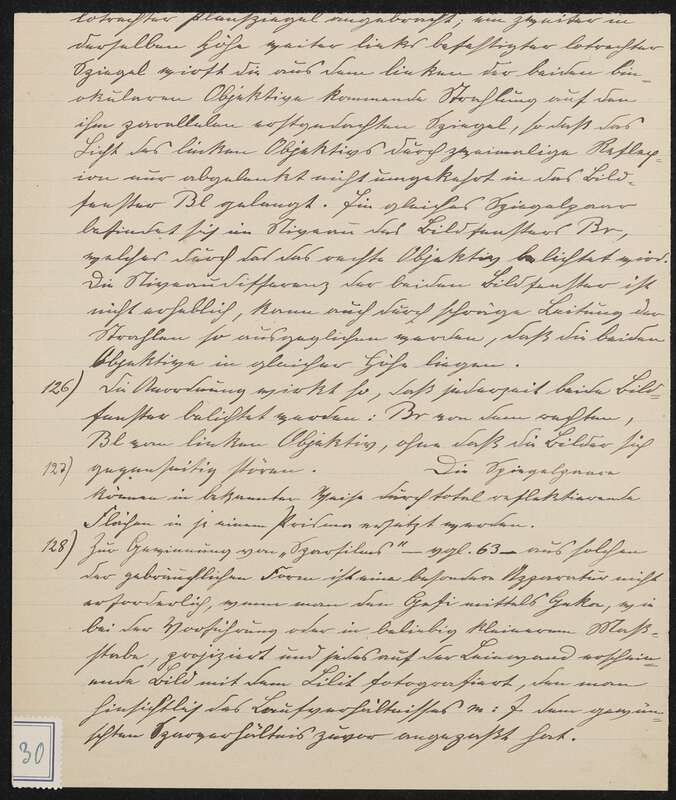 lotrechter Planspiegel angebracht; ein zweiter in
derselben Höhe weiter links befestigter lotrechter
Spiegel wirft die aus dem linken der beiden bin-
okularen Objektive kommende Strahlung auf den
ihm parallelen erstgedachten Spiegel, so daß das
Licht des linken Objektivs durch zweimalige Reflex-
ion nur abgelenkt nicht umgekehrt in das Bild-
fenster Bl gelangt. Ein gleiches Spiegelpaar
befindet sich im Niveau des Bildfensters Br,
welches durch das rechte Objektiv belichtet wird.
Die Niveaudifferenz der beiden Bildfenster ist
nicht erheblich, kann auch durch schräge Leitung der
Strahlen so ausgeglichen werden, daß die beiden
Objektive in gleicher Höhe liegen.
126) Die Anordnung wirkt so, daß jederzeit beide Bild-
fenster belichtet werden: Br von dem rechten,
Bl vom linken Objektiv, ohne daß die Bilder sich
127) gegenseitig stören. Die Spiegelpaare
können in bekannter Weise durch total reflektierende
Flächen in je einem Prisma ersetzt werden.
128) Zur Gewinnung von „Sparfilms" – vgl. 63 – aus solchen
der gebräuchlichen Form ist eine besondere Apparatur nicht
erforderlich, wenn man den Gefi mittels Geka, wie
bei der Vorführung oder in beliebig kleinerem Maß-
stabe, projiziert und jedes auf der Leinwand erschein-
ende Bild mit dem Lilit fotografiert, den man
hinsichtlich des Laufverhältnisses m : f dem gewün-
schten Sparverhältnis zuvor angepaßt hat.
30